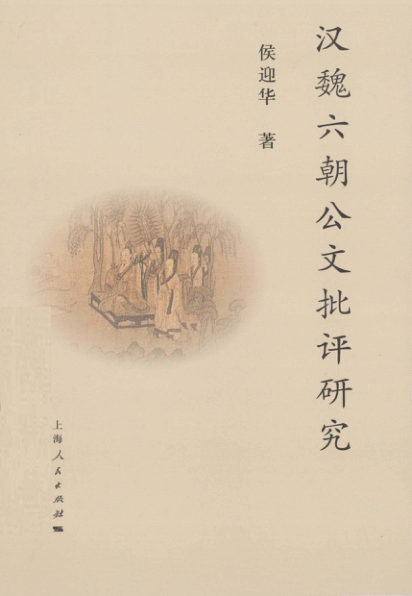 汉魏六朝公文批评研究
侯迎华 著
上海人民出版社